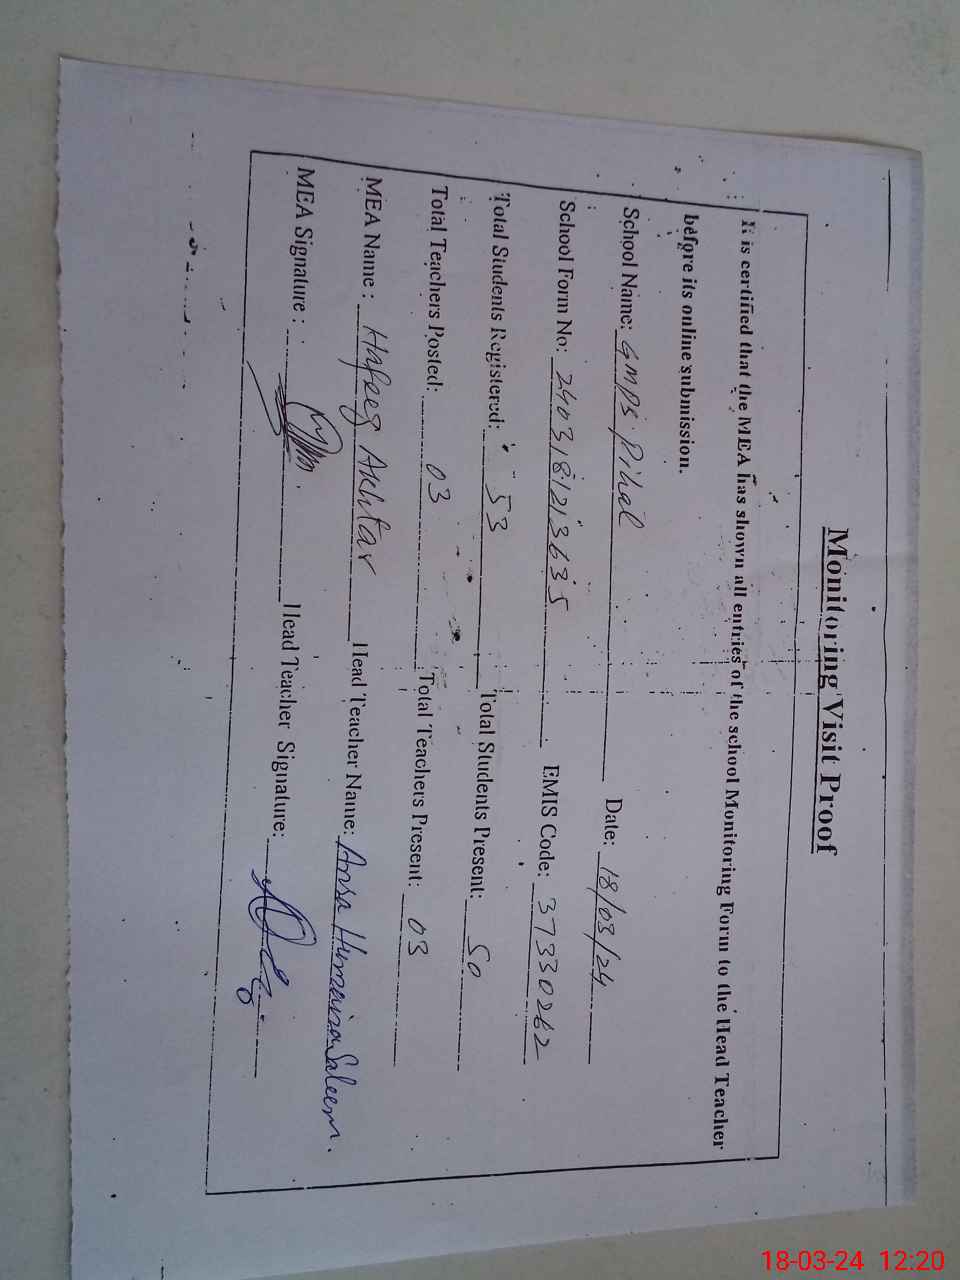 Monitoring Visit Proof
It is certified that the MEA has shown all entries of the school Monitoring Form to the Head Teacher
before its online submission.
School Name: GMPS Pihal Date: 18/03/24
School Form No: 24031812 13635 EMIS Code: 37330262
Total Students Registered: 53 Total Students Present: 50
Total Teachers Posted: 03 Total Teachers Present: 03
MEA Name: Hafeez Akhtar Head Teacher Name: Ansa Humaira Saleem.
MEA Signature: Head Teacher Signature:
18-03-24 12:20